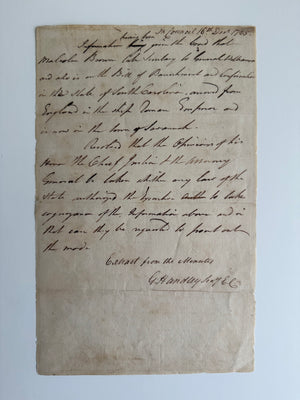 In Council 16th Decr. 1785
Information having been given the Board that
Malcolm Brown late Secretary to General
and also in the Bill of Banishment and Confiscation
in the State of South Carolina, arrived from
England in the ship Roman Emperor and
is now in the town of Savannah.
Resolved that the Opinion of his
Honor the Chief Justice & the Attorney
General be taken whether any Law of the
State authorizes the to take
cognizance of the Information above and in
that case they be requested to point out
the mode.
Extract from the Minutes
G Handley Secy E C